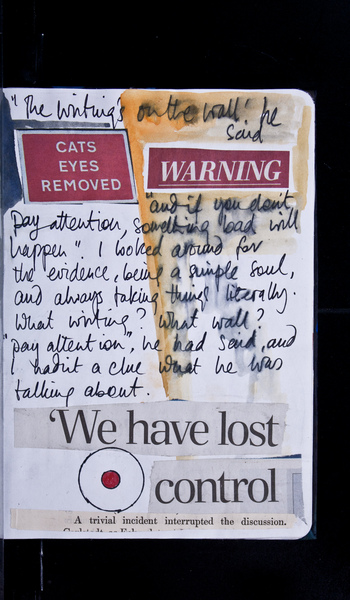 "The writing's on the wall" he
said
CATS
EYES
REMOVED
WARNING
"and if you don't
pay attention, something bad will
happen". I looked around for
the evidence, being a simple soul,
and always taking things literally.
What writing? What wall?
"pay attention", he had said, and
I hadn't a clue what he was
talking about.
'We have lost
control
A trivial incident interrupted the discussion.